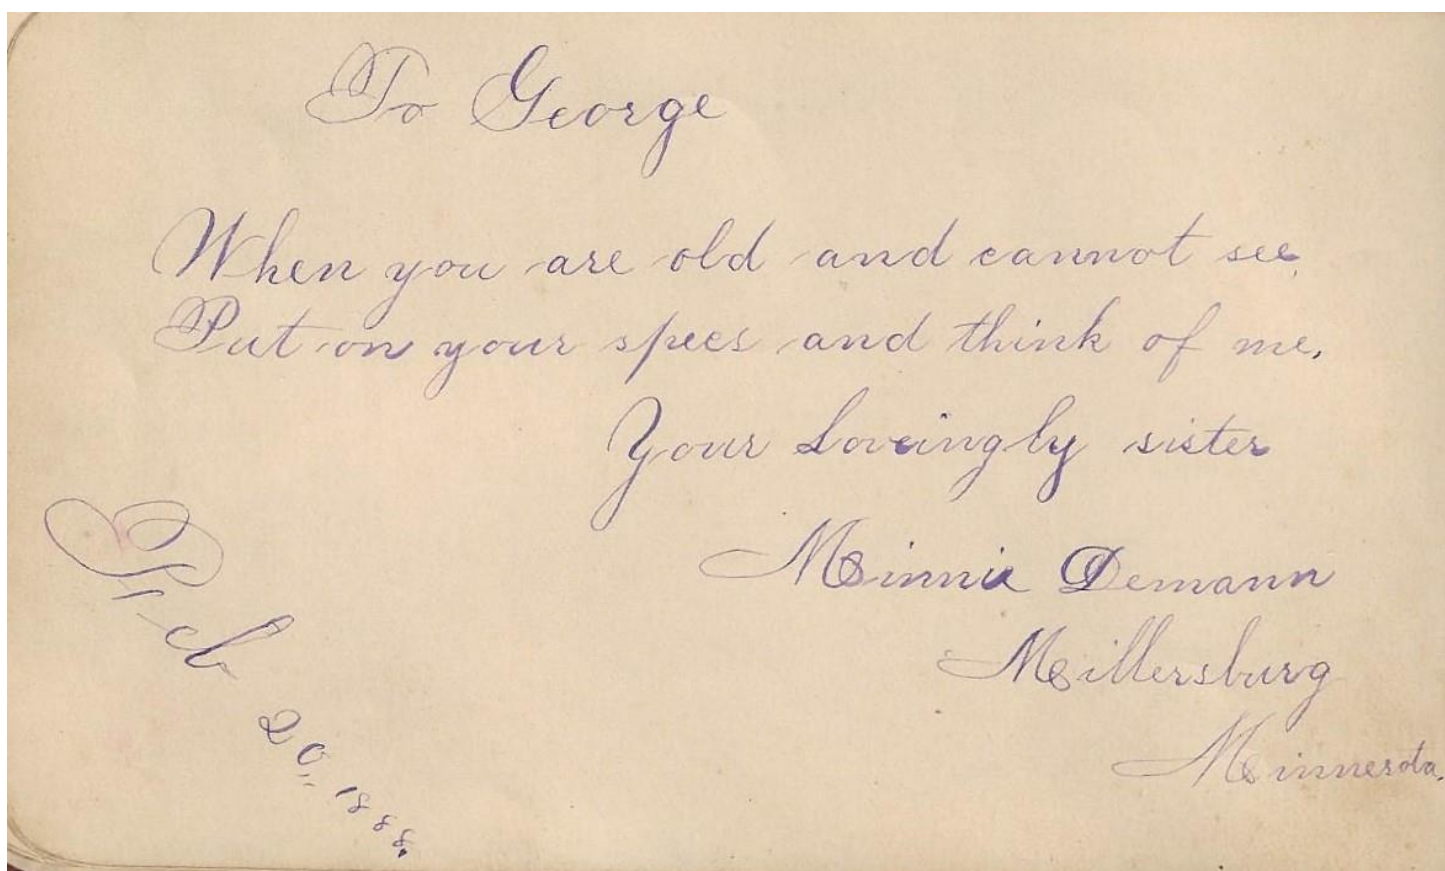 To George
When you are old and cannot see
Put on your specs and think of me.
Your Loveingly sister
Minnie Demann
Millersburg
Minnesota.
Feb 20, 1888.